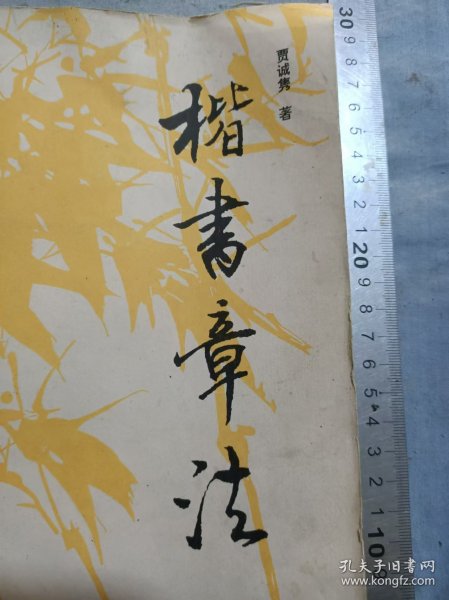 贾诚隽 著
楷书章法
30
9
8
7
6
5
4
3
2
1
20
9
8
7
6
5
4
3
2
1
10
9
孔夫子旧书网
www.kongfz.com